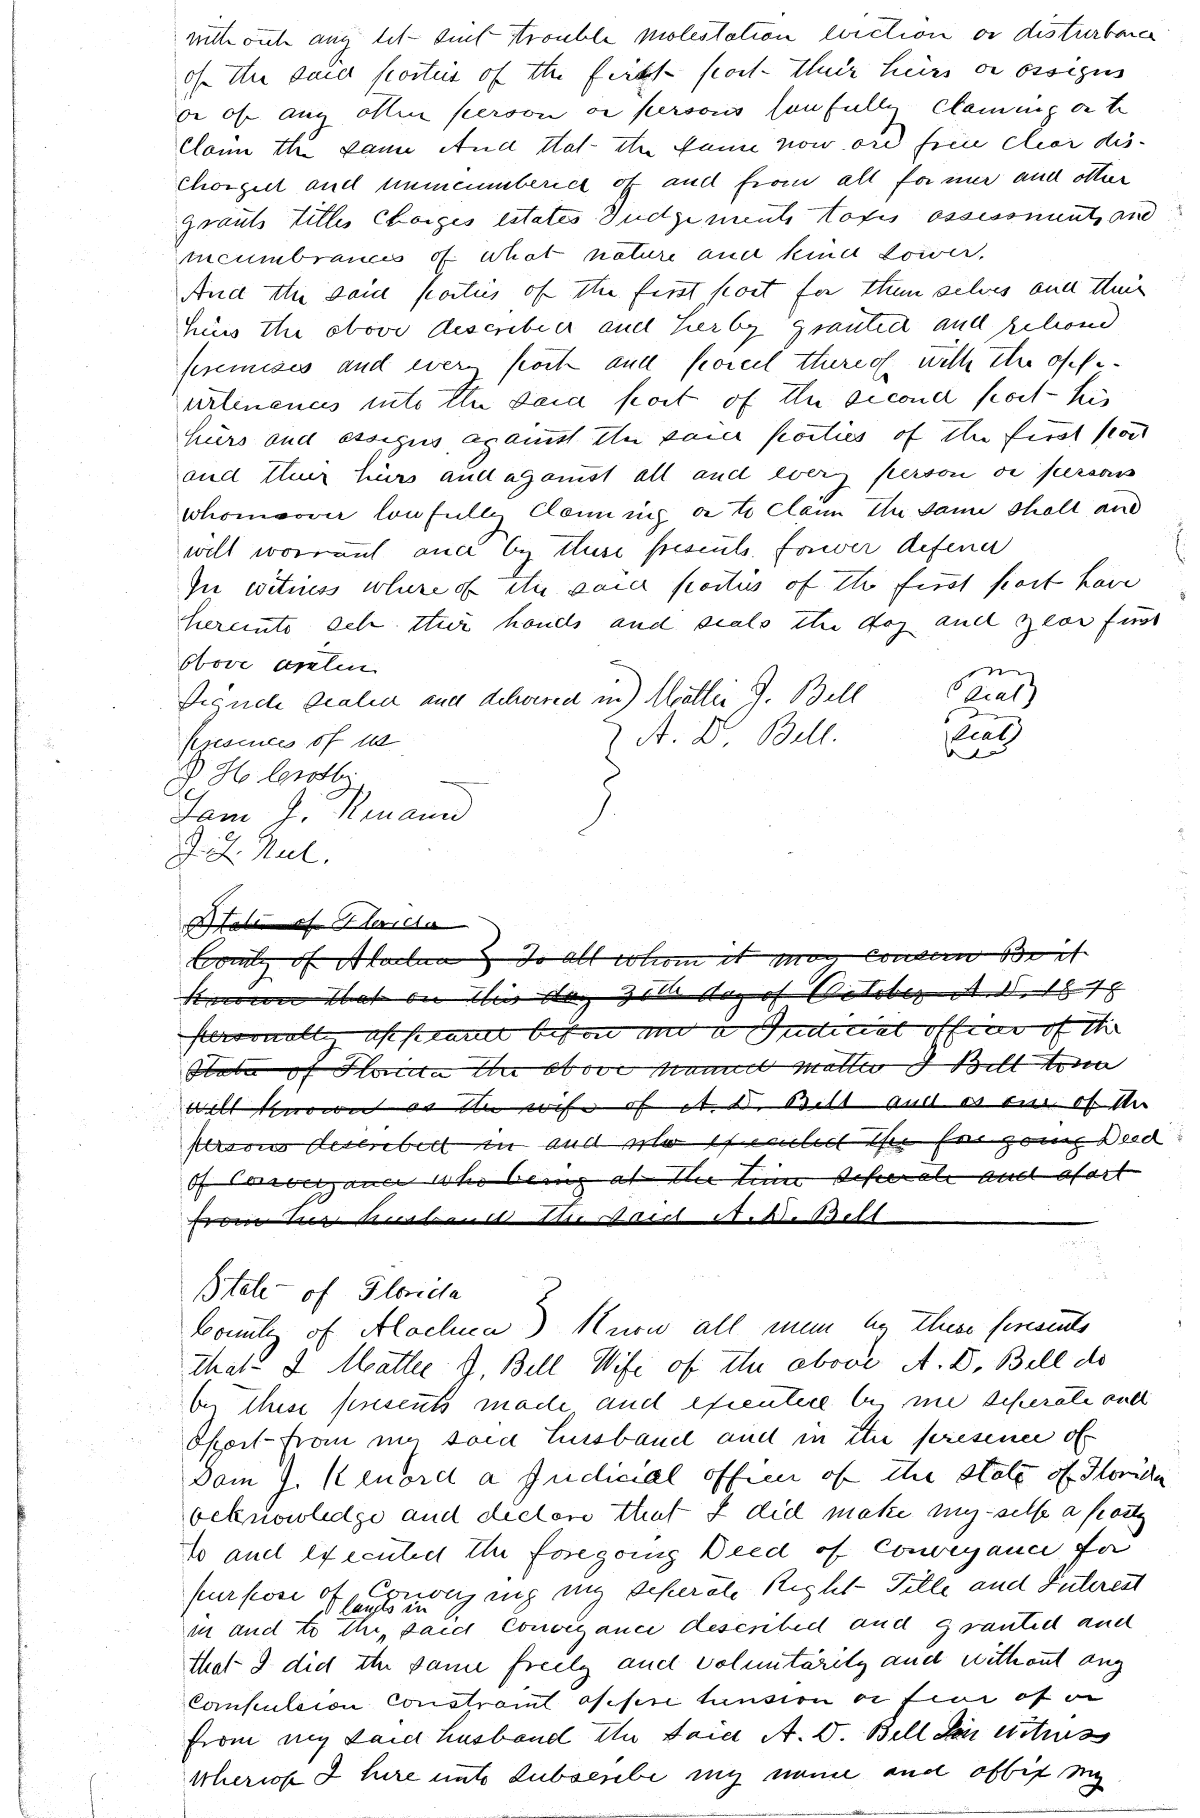 with out any let suit trouble molestation eviction or disturbance
of the said parties of the first part their heirs or assigns
or of any other person or persons lawfully claming or to
claim the same And that the same now are free clear dis-
charged and unincumbered of and from all former and other
grants titles charges estates Judgements taxes assessments and
incumbrances of what nature and kind sower.
And the said parties of the first part for them selves and their
heirs the above described and herby granted and relised
premises and every part and parcel thereof with the appe-
urtenances into the said part of the second part his
heirs and assigns against the said parties of the first part
and their heirs and against all and every person or persons
whomsoever lawfully claiming or to claim the same shall and
will warrant and by these presents forver defend
In witness where of the said parties of the first part have
hereunto set their hands and seals the day and year first
above writen
Signde sealed and delivered in) Mattie J. Bell (seal)
presences of us } A. D. Bell. (seal)
H Crosby
Sam J. Kenard
J. Z. Neel.
State of Florida
County of Alachua } To all whom it may concern Be it
known that on this day 30th day of October A.D. 1878
personally appeared before me a Judicial officer of the
State of Florida the above named mattie J Bell to me
well known as the wife of A. D. Bell and as one of the
persons described in and who executed the for going Deed
of Conveyance who being at the time seperate and apart
from her husband the said A. D. Bell
State of Florida
County of Alachua } Know all men by these presents
that I Mattie J. Bell Wife of the above A. D. Bell do
by these presents made and executed by me seperate and
apart from my said husband and in the presence of
Sam J. Kenard a Judicial officer of the state of Florida
acknowledge and declare that I did make my-self a party
to and executed the foregoing Deed of Conveyance for
purpose of Conveying my seperate Right Title and Interest
in and to the lands in said Conveyance described and granted and
that I did the same freely and voluntarily and without any
compulsion constraint appre hension or fear of or
from my said husband the said A. D. Bell In witness
whereof I here unto subscribe my name and affix my